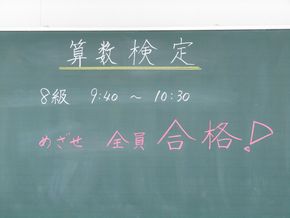 算数検定
8級 9:40 ～ 10:30
めざせ 全員 合格!